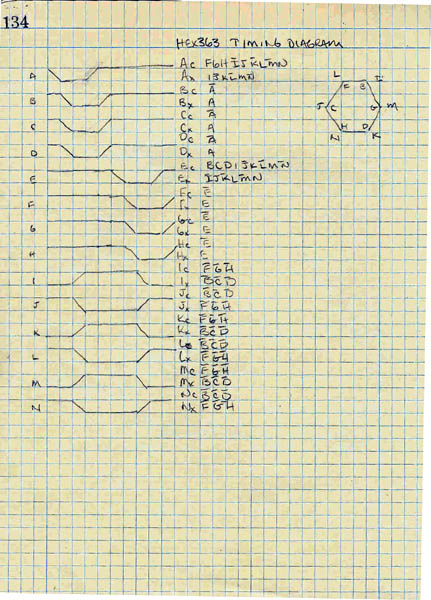 134
HEX363 TIMING DIAGRAM
A
Ac FGHIJKLMN
Ax IJKLMN
B
Bc A
Bx A
C
Cc A
Cx A
D
Dc A
Dx A
E
Ec BCDIJKLMN
Ex IJKLMN
F
Fc E
Fx E
G
Gc E
Gx E
H
Hc E
Hx E
I
Ic FGH
Ix BCD
J
Jc BCD
Jx FGH
K
Kc FGH
Kx BCD
L
Lc BCD
Lx FGH
M
Mc FGH
Mx BCD
N
Nc BCD
Nx FGH
L I
F B
J C G M
H D
N K